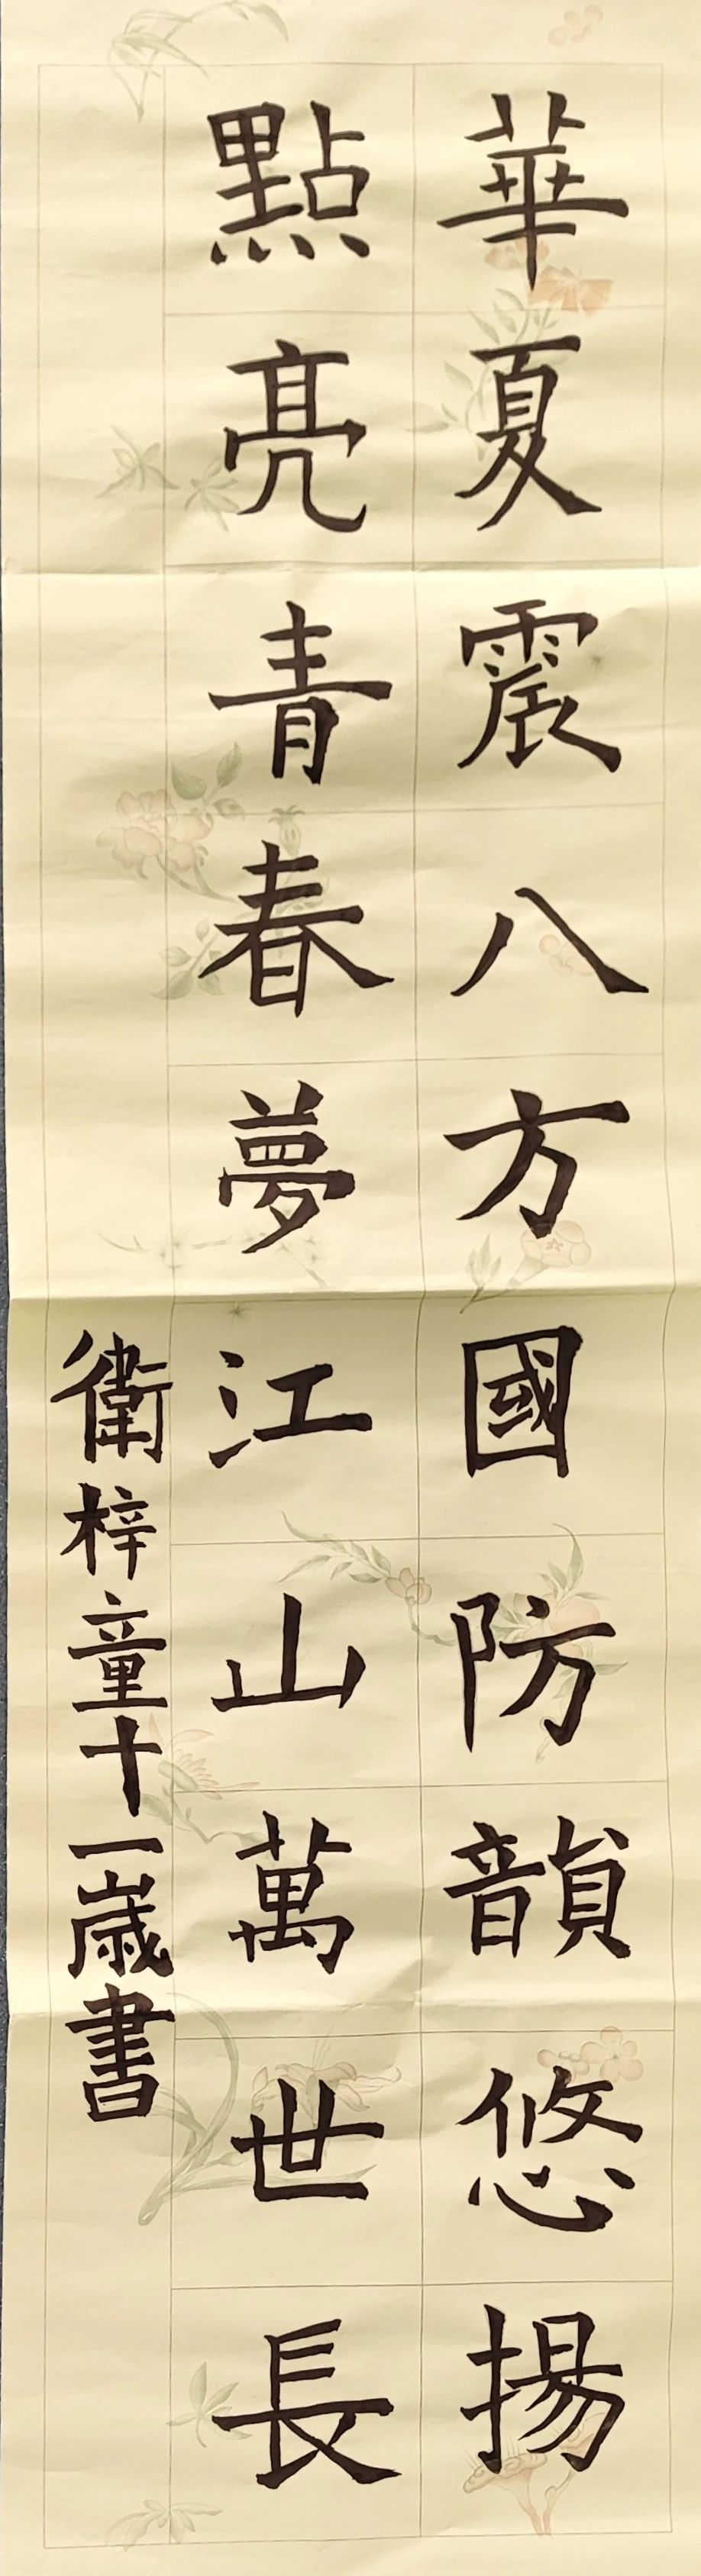 華夏震八方國防韻悠揚
點亮青春夢江山萬世長
衛梓童十一歲書